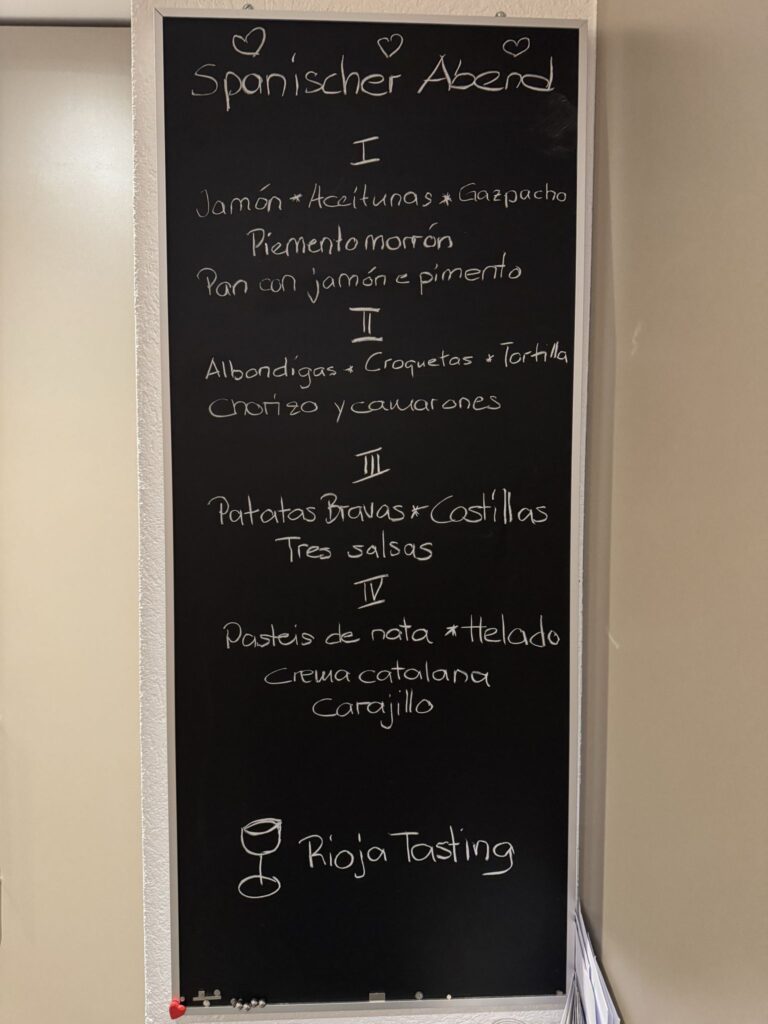 Spanischer Abend
I
Jamón * Aceitunas * Gazpacho
Piementomorrón
Pan con jamón e pimento
II
Albondigas * Croquetas * Tortilla
Chorizo y camarones
III
Patatas Bravas * Costillas
Tres salsas
IV
Pasteis de nata * Helado
Crema catalana
Carajillo
Rioja Tasting